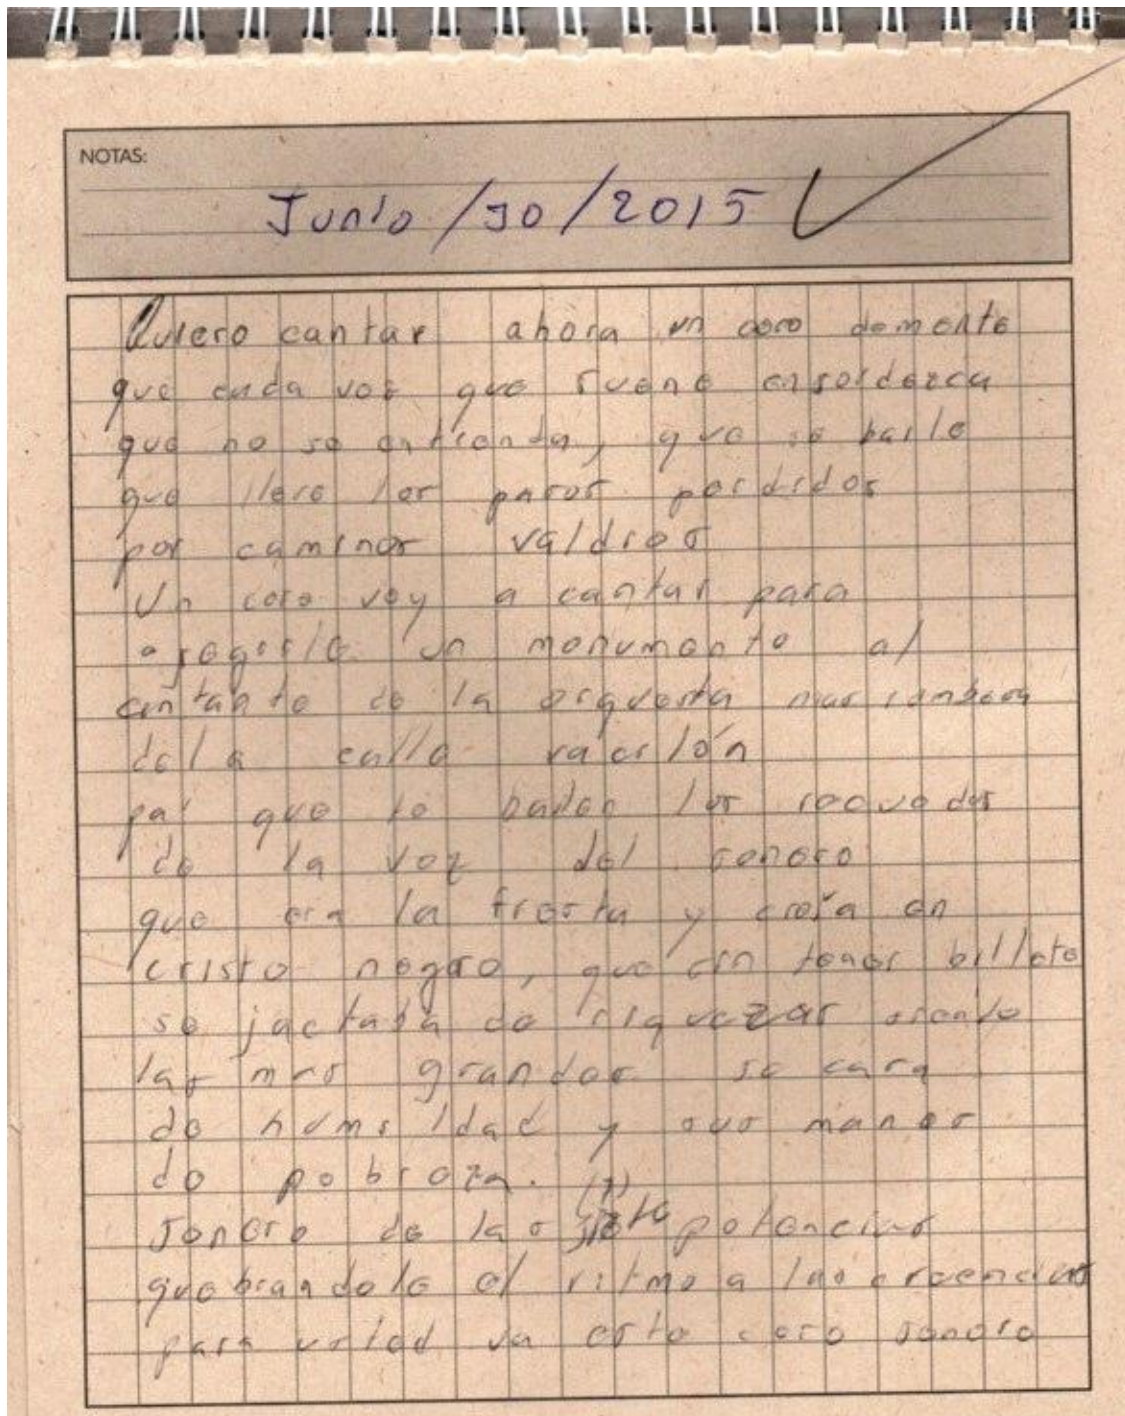 NOTAS:
Junio /30/2015
Quiero cantar ahora un coro demente
que cada vez que suene ensordezca
que no se entienda, que se baile
que lleve los pasos perdidos
por caminos valdíos
Un coro voy a cantar para
un monumento al
cantante de la orquesta
de la calle vacilón
pa' que le bailen los
de la voz del sonoro
que era la fiesta y creía en
cristo negro, que sin tener billete
se jactaba de riquezas siendo
las mas grandes su cara
de humildad y sus manos
de pobreza.
(7)
Sonoro de las siete potencias
quebrandole el ritmo a las creencias
para usted va este coro sonoro